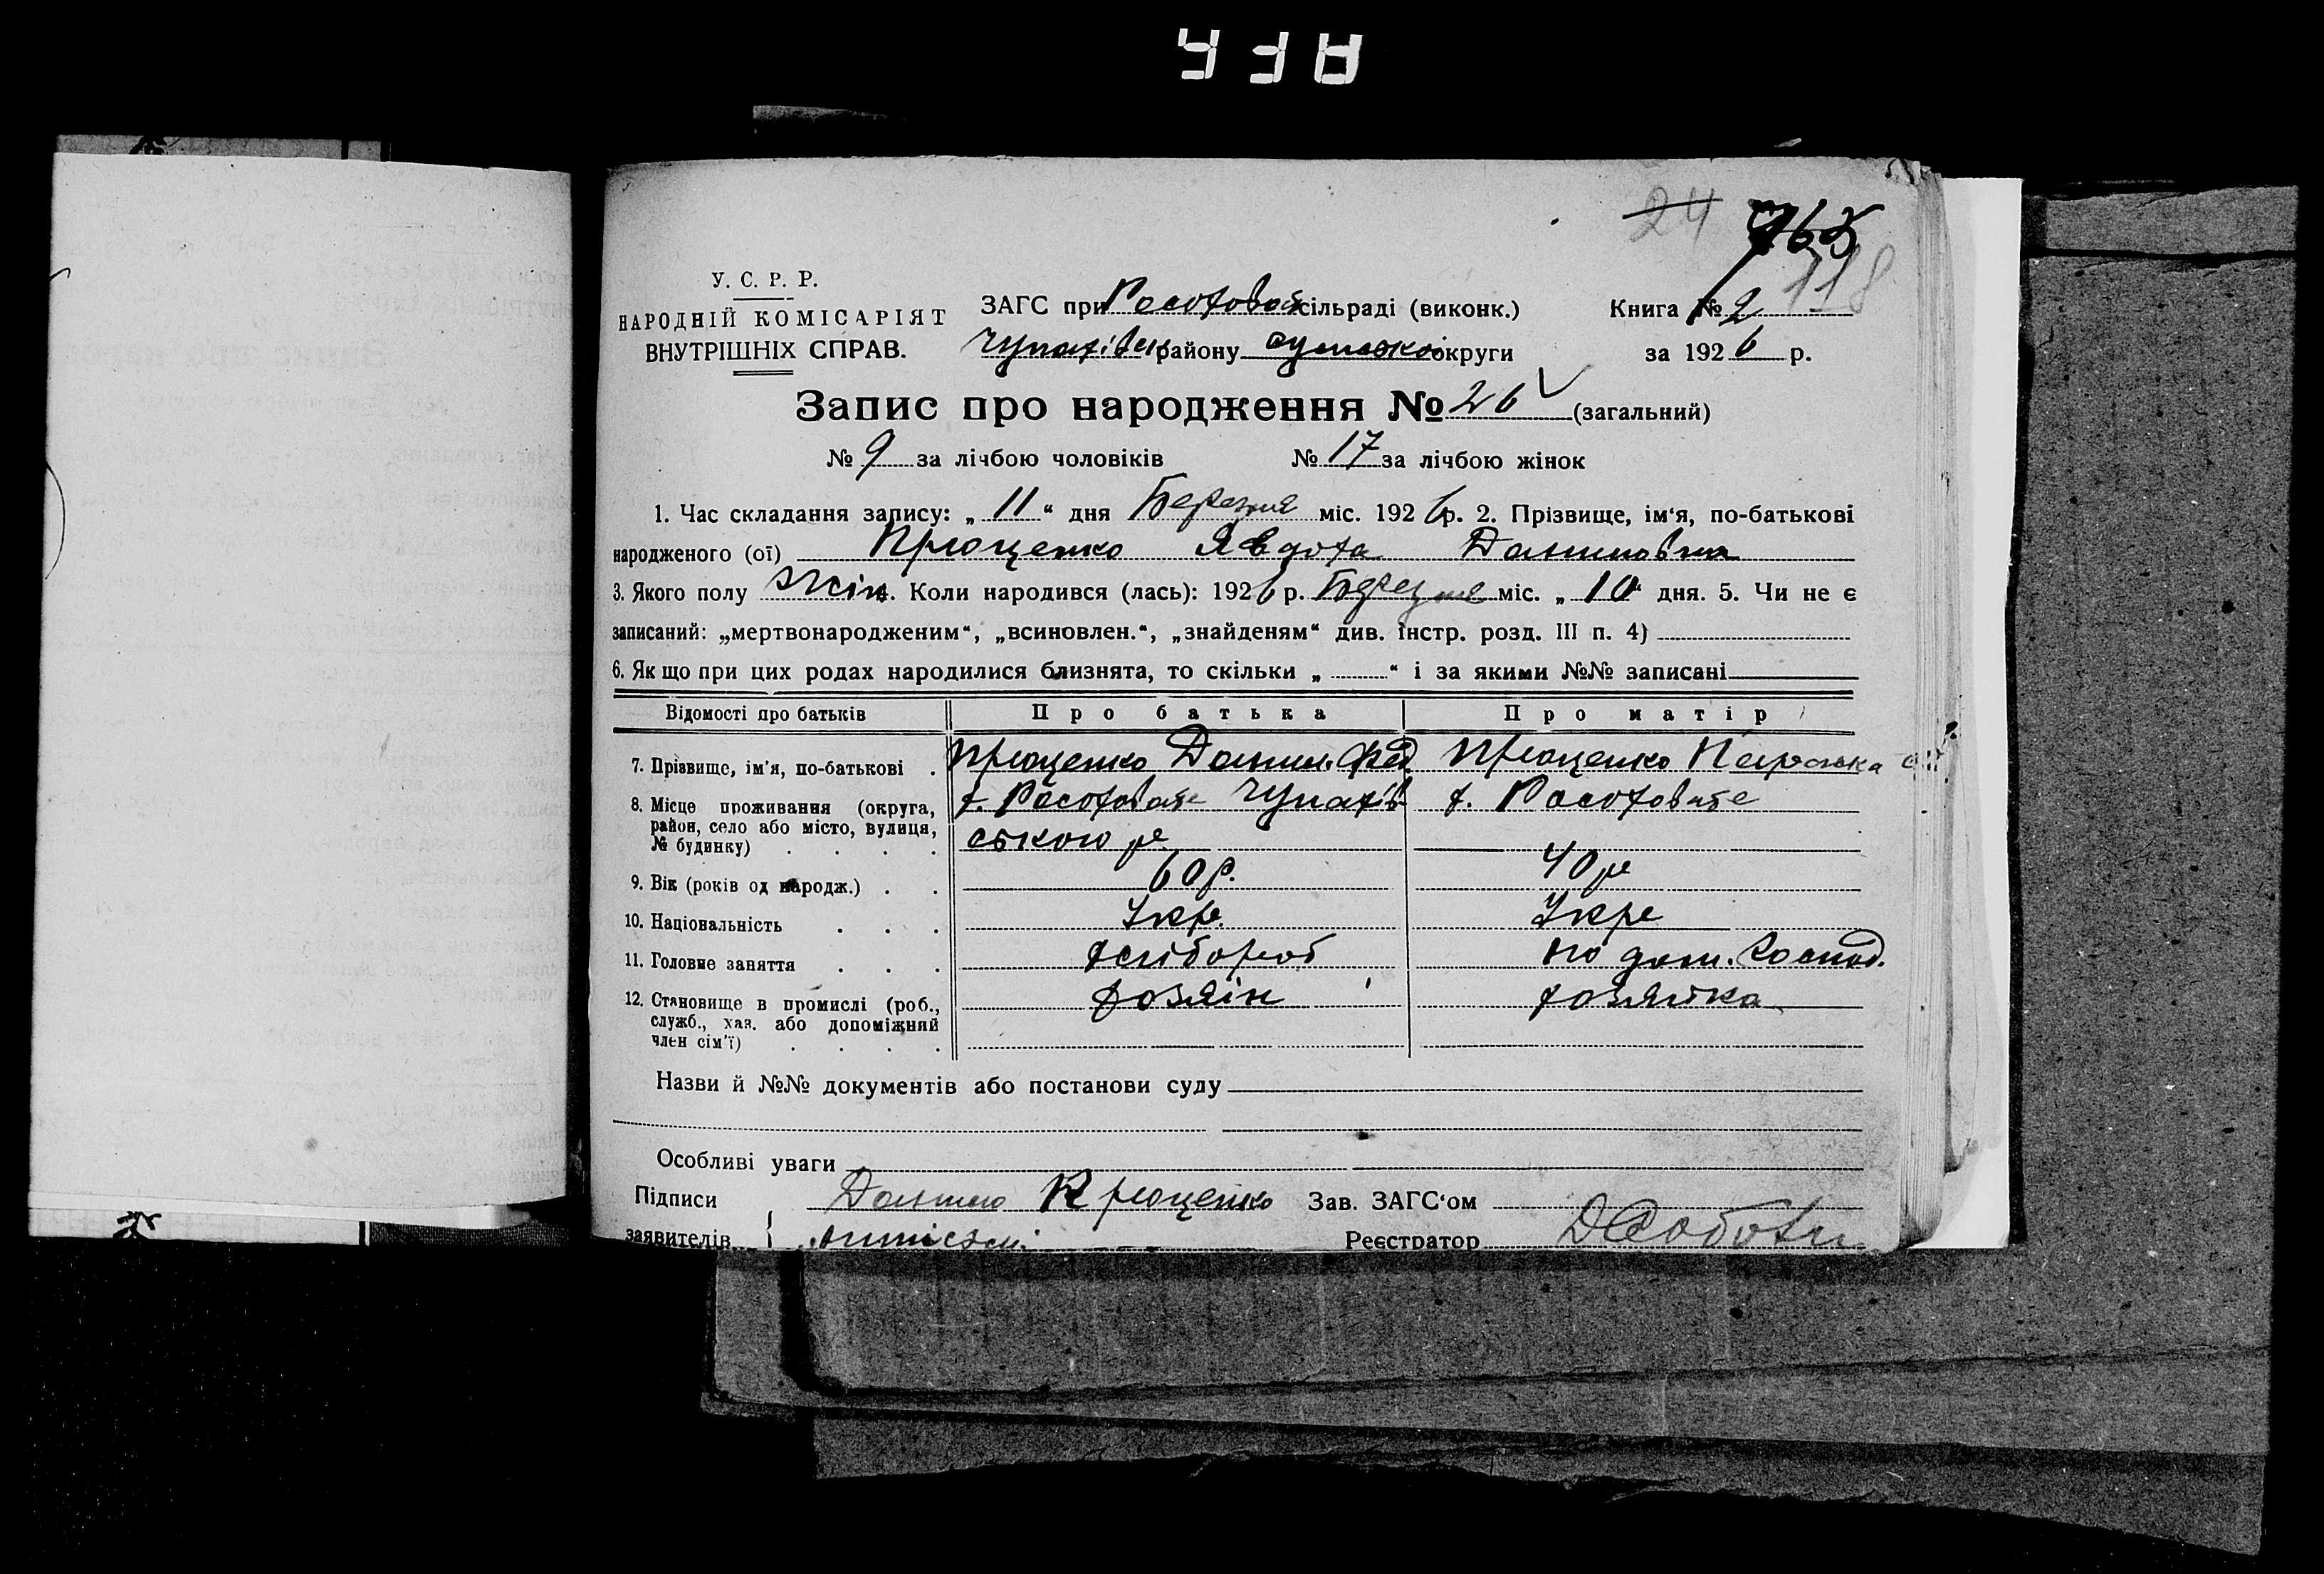 24 765
118
У. С. Р. Р.
НАРОДНІЙ КОМІСАРІЯТ
ВНУТРІШНІХ СПРАВ.
ЗАГС при сільраді (виконк.)
району округи
Книга № 2
за 1926 р.
Запис про народження № 26 (загальний)
№ 9 за лічбою чоловіків № 17 за лічбою жінок
1. Час складання запису: „ 11 “ дня Березня міс. 1926 р. 2. Прізвище, ім‘я, по-батькові
народженого (ої) Явдоха
3. Якого полу жін. Коли народився (лась): 1926 р. Березня міс. „ 10 “ дня. 5. Чи не є
записаний: „мертвонародженим“, „всиновлен.“, „знайденям“ див. інстр. розд. III п. 4)
6. Як що при цих родах народилися близнята, то скільки „ “ і за якими №№ записані
Відомості про батьків Про батька Про матір
7. Прізвище, ім‘я, по-батькові
8. Місце проживання (округа,
район, село або місто, вулиця,
№ будинку) ського р.
9. Вік (років од народж.) 60 р. 40 р
10. Національність Укр. Укр
11. Головне заняття хлібороб по дом. господ.
12. Становище в промислі (роб., хозяін хозяйка
служб., хаз. або допоміжний
член сім‘ї)
Назви й №№ документів або постанови суду
Особливі уваги
Підписи Зав. ЗАГС‘ом
заявителів Реєстратор